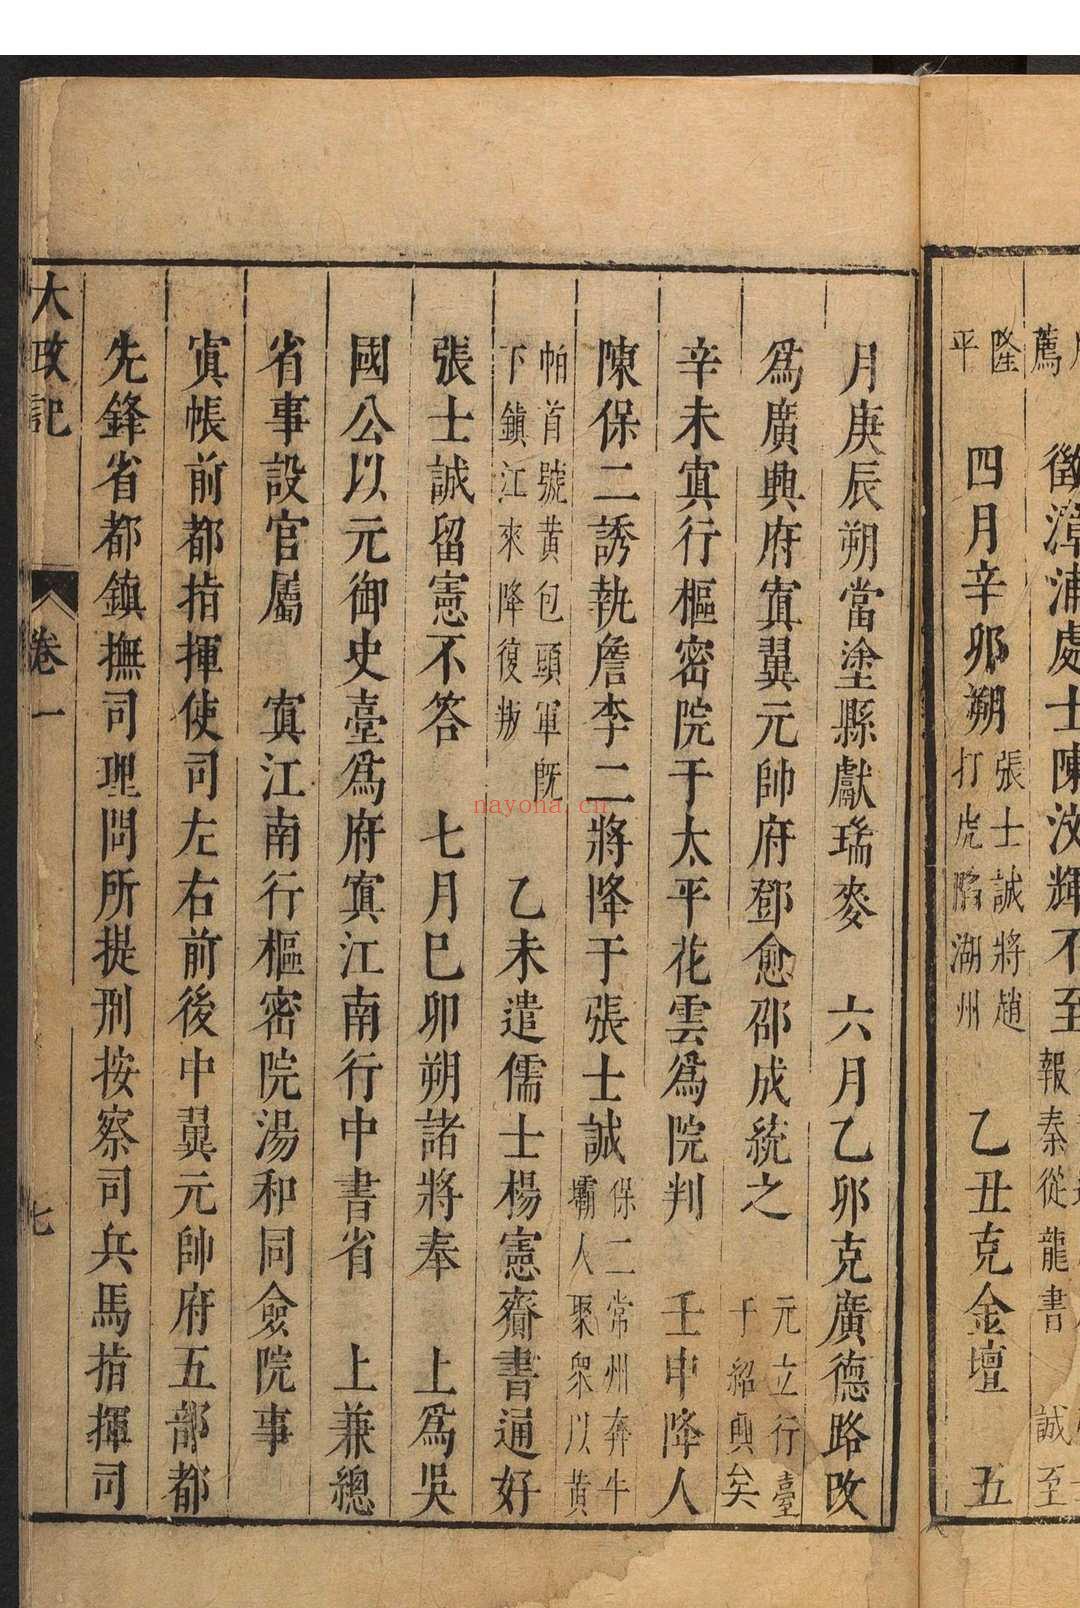 薦
徵漳浦處士陳汶輝不至
報秦從龍書
誠至
隆
平
四月辛卯朔
張士誠將趙
打虎陷湖州
乙丑克金壇　五
月庚辰朔當塗縣獻瑞麥　六月乙卯克廣德路改
爲廣興府寘翼元帥府鄧愈邵成統之
元立行臺
于紹興矣
辛未寘行樞密院于太平花雲爲院判　壬申降人
陳保二誘執詹李二將降于張士誠
保二常州奔牛
壩人聚衆以黄
帕首號黄包頭軍既
下鎭江來降復叛
乙未遣儒士楊憲齎書通好
張士誠留憲不答　七月巳卯朔諸將奉　上爲吳
國公以元御史臺爲府寘江南行中書省　上兼總
省事設官屬　寘江南行樞密院湯和同僉院事
寘帳前都指揮使司左右前後中翼元帥府五部都
先鋒省都鎮撫司理問所提刑按察司兵馬指揮司
大政記　卷一　七
nayona.cn